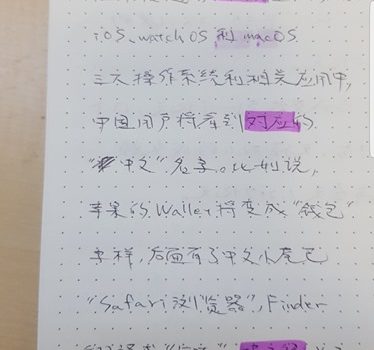 iOS、watchOS 和 macOS
三大操作系统和相关应用中，
中国用户将看到对应的
“中文”名字。比如说，
苹果的 Wallet 将变成“钱包”
字样，后面有了中文小尾巴
“Safari 浏览器”，Finder